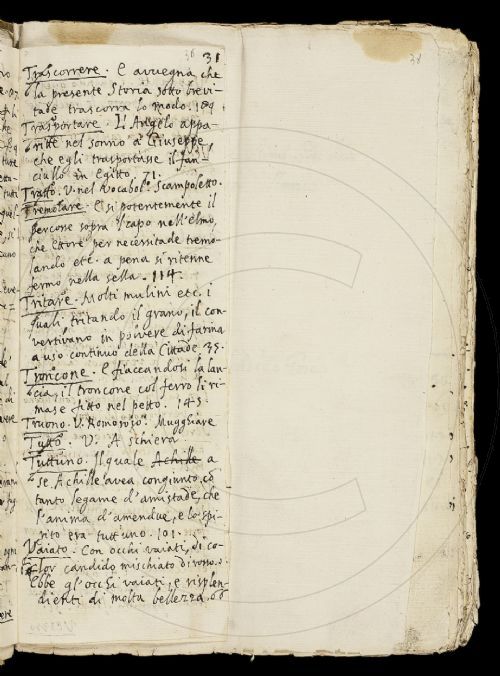 36 31
Trascorrere. E avvegna che
la presente Storia sotto brevi-
tade trascorra lo modo. 189.
Trasportare. L'Angelo appa-
ritte nel sonno a Giuseppe,
che egli trasportasse il fan-
ciullo in Egitto. 71.
Tratto. V. nel Vocabol.º Scampoletto.
Tremolare. E sì potentemente il
percosse sopra 'l capo nell'elmo,
che Ettore per necessitade tremo-
lando etc. a pena si ritenne
fermo nella sella. 114.
Tritare. Molti mulini etc. i
quali, tritando il grano, il con-
vertivano in polvere di farina
a uso continuo della Cittade. 35.
Troncone. E fiaccandosi la lan-
cia, il troncone col ferro li ri-
mase fitto nel petto. 145.
Truono. V. Romoroso. Mugghiare
Tutto. V. A schiera
Tuttuno. Il quale Achille a
se Achille avea congiunto, cõ
tanto legame d'amistade, che
l'anima d'amendue, e lo spi-
rito era tuttuno. 101.
Vaiato. Con occhi vaiati, di co-
lor candido mischiato di rosso.
Ebbe gl'occhi vaiati, e risplen-
dienti di molta bellezza. 66